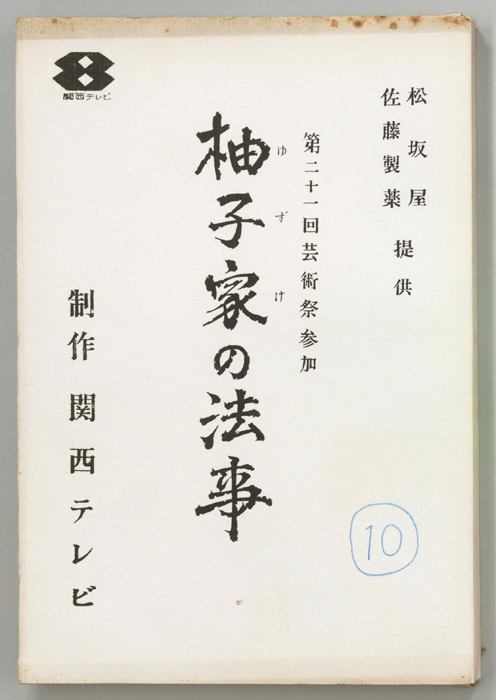 関西テレビ
松坂屋
佐藤製薬 提供
第二十一回芸術祭参加
ゆずけ
柚子家の法事
制作 関西テレビ
10